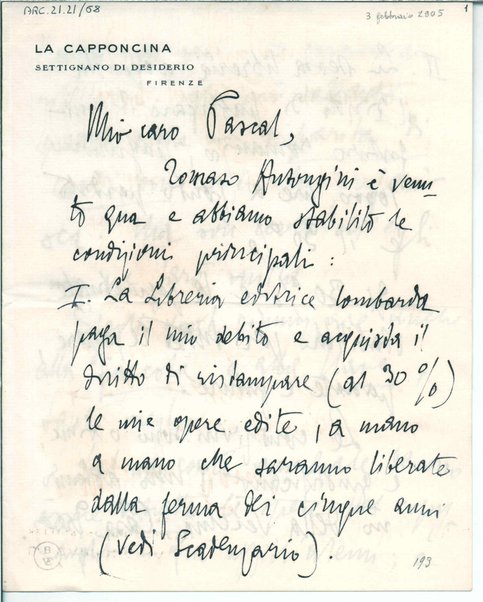 ARC.21.21/68
3 febbraio 1905
1
LA CAPPONCINA
SETTIGNANO DI DESIDERIO
FIRENZE
Mio caro Pascal,
Tomaso Antongini è venu-
to qua e abbiamo stabilito le
condizioni principali:
I. La Libreria editrice lombarda
paga il mio debito e acquista il
diritto di ristampare (al 30%)
le mie opere edite, a mano
a mano che saranno liberate
dalla ferma dei cinque anni
(vedi Scadenzario).
193